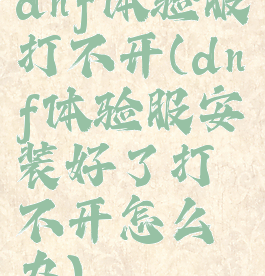 dnf体验服
打不开(dn
f体验服安
装好了打
不开怎么
办)